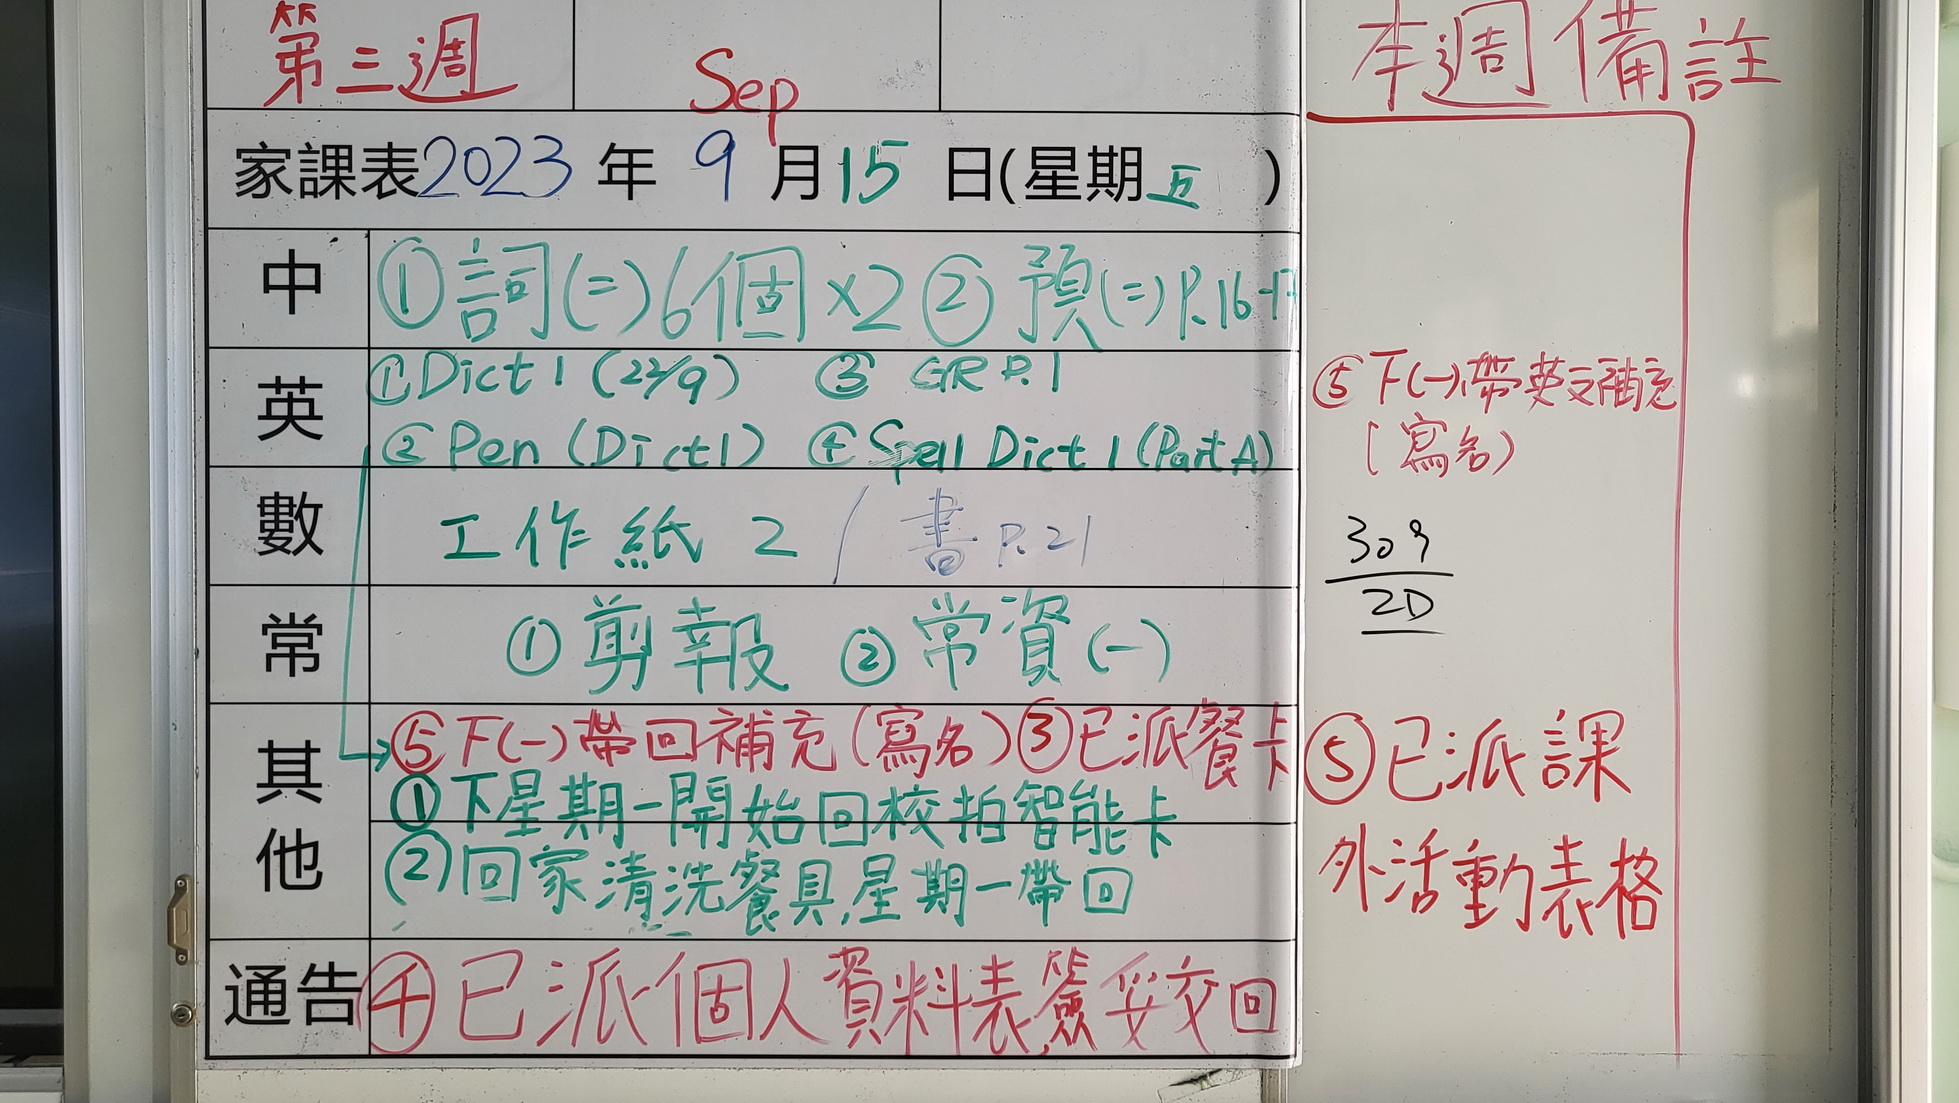 第三週
Sep
家課表2023年9月15日(星期五)
中
①詞(二)6個x2 ②預(二)P.16-17
英
①Dict 1 (22/9) ③ GR P.1
②Pen (Dict 1) ④Spell Dict 1 (Part A)
數
工作紙 2 / 書 P.21
常
①剪報 ②常資(一)
其他
⑤下(一)帶回補充(寫名)③已派餐卡
①下星期一開始回校拍智能卡
②回家清洗餐具,星期一帶回
通告
④已派個人資料表,簽妥交回
本週備註
⑤下(一)帶英文補充
(寫名)
309
2D
⑤已派課
外活動表格